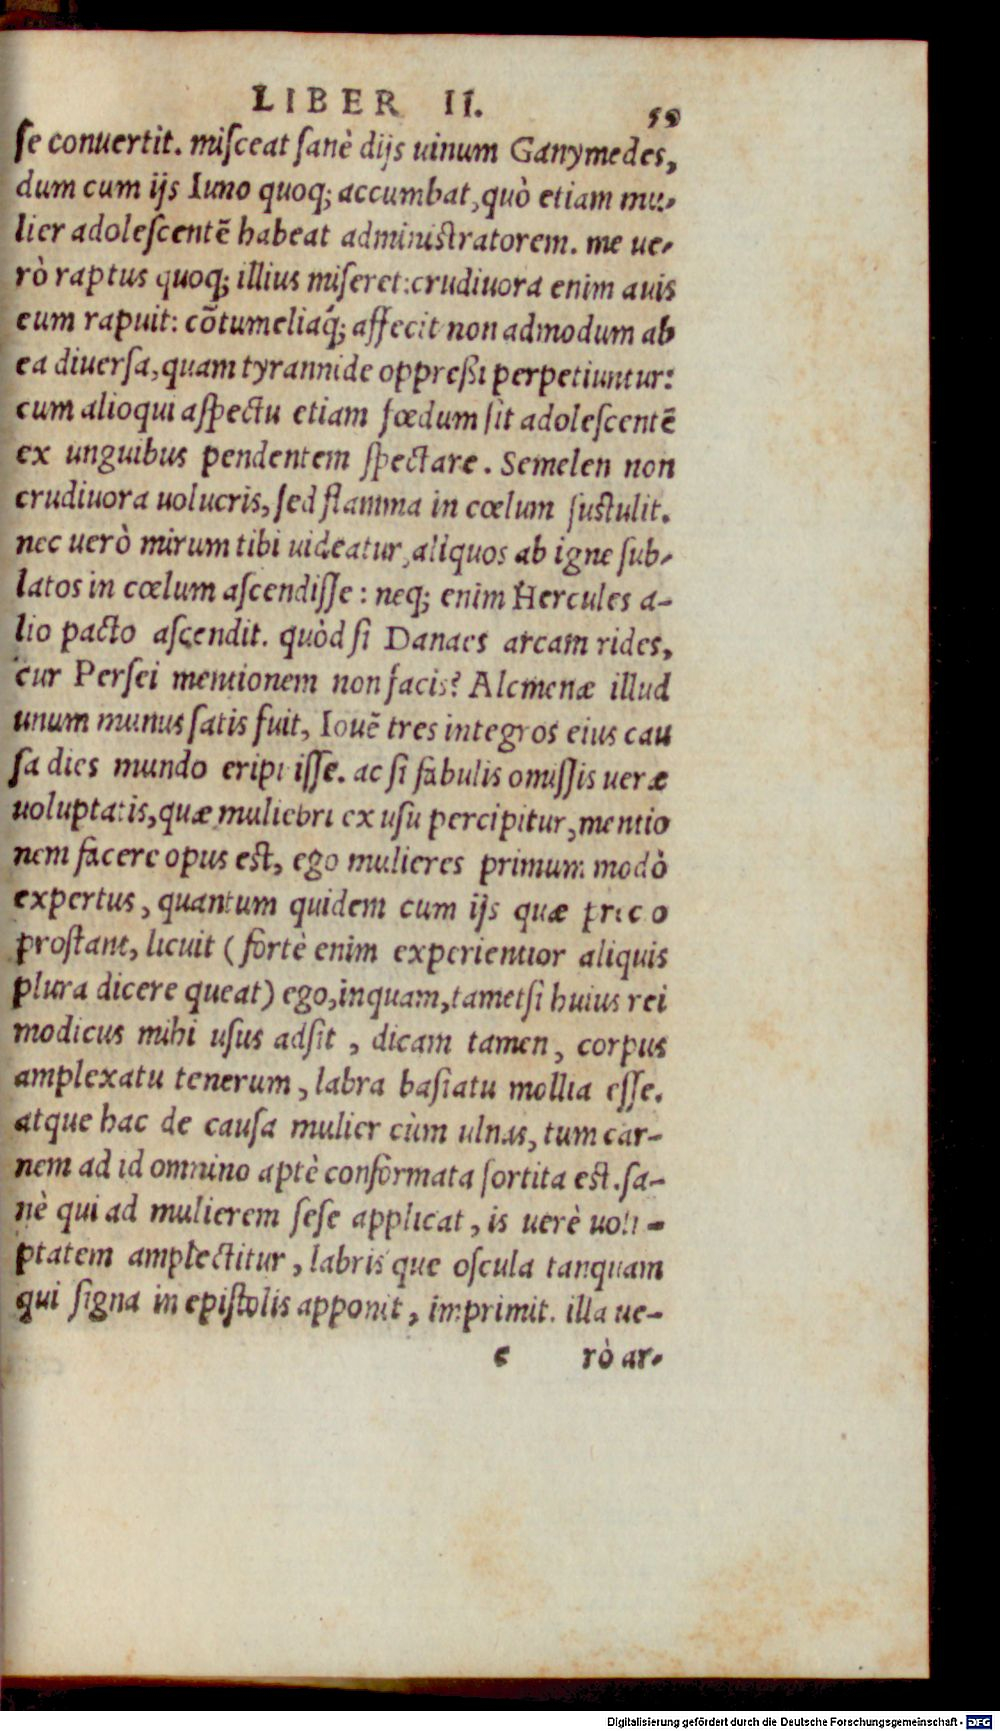 LIBER II. 59
ſe conuertit. miſceat ſanè dijs uinum Ganymedes,
dum cum ijs Iuno quoq; accumbat, quò etiam mu-
lier adoleſcentẽ habeat adminiſtratorem. me ue-
rò raptus quoq; illius miſeret: crudiuora enim auis
eum rapuit: cõtumeliaq́; affecit non admodum ab
ea diuerſa, quam tyrannide oppreßi perpetiuntur:
cum alioqui aſpectu etiam fœdum ſit adoleſcentẽ
ex unguibus pendentem ſpectare. Semelen non
crudiuora uolucris, ſed flamma in cœlum ſuſtulit.
nec uerò mirum tibi uideatur, aliquos ab igne ſub-
latos in cœlum aſcendiſſe: neq; enim Hercules a-
lio pacto aſcendit. quòd ſi Danaes arcam rides,
cur Perſei mentionem non facis? Alcmenæ illud
unum munus ſatis fuit, Iouẽ tres integros eius cau
ſa dies mundo eripuiſſe. ac ſi fabulis omiſſis ueræ
uoluptatis, quæ muliebri ex uſu percipitur, mentio
nem facere opus eſt, ego mulieres primum modò
expertus, quantum quidem cum ijs quæ precio
proſtant, licuit (fortè enim experientior aliquis
plura dicere queat) ego, inquam, tametſi huius rei
modicus mihi uſus adſit, dicam tamen, corpus
amplexatu tenerum, labra baſiatu mollia eſſe.
atque hac de cauſa mulier cùm ulnas, tum car-
nem ad id omnino aptè conformata ſortita eſt. ſa-
nè qui ad mulierem ſeſe applicat, is uerè uolu-
ptatem amplectitur, labrisque oſcula tanquam
qui ſigna in epiſtolis apponit, imprimit. illa ue-
e rò ar-
Digitalisierung gefördert durch die Deutsche Forschungsgemeinschaft - DFG